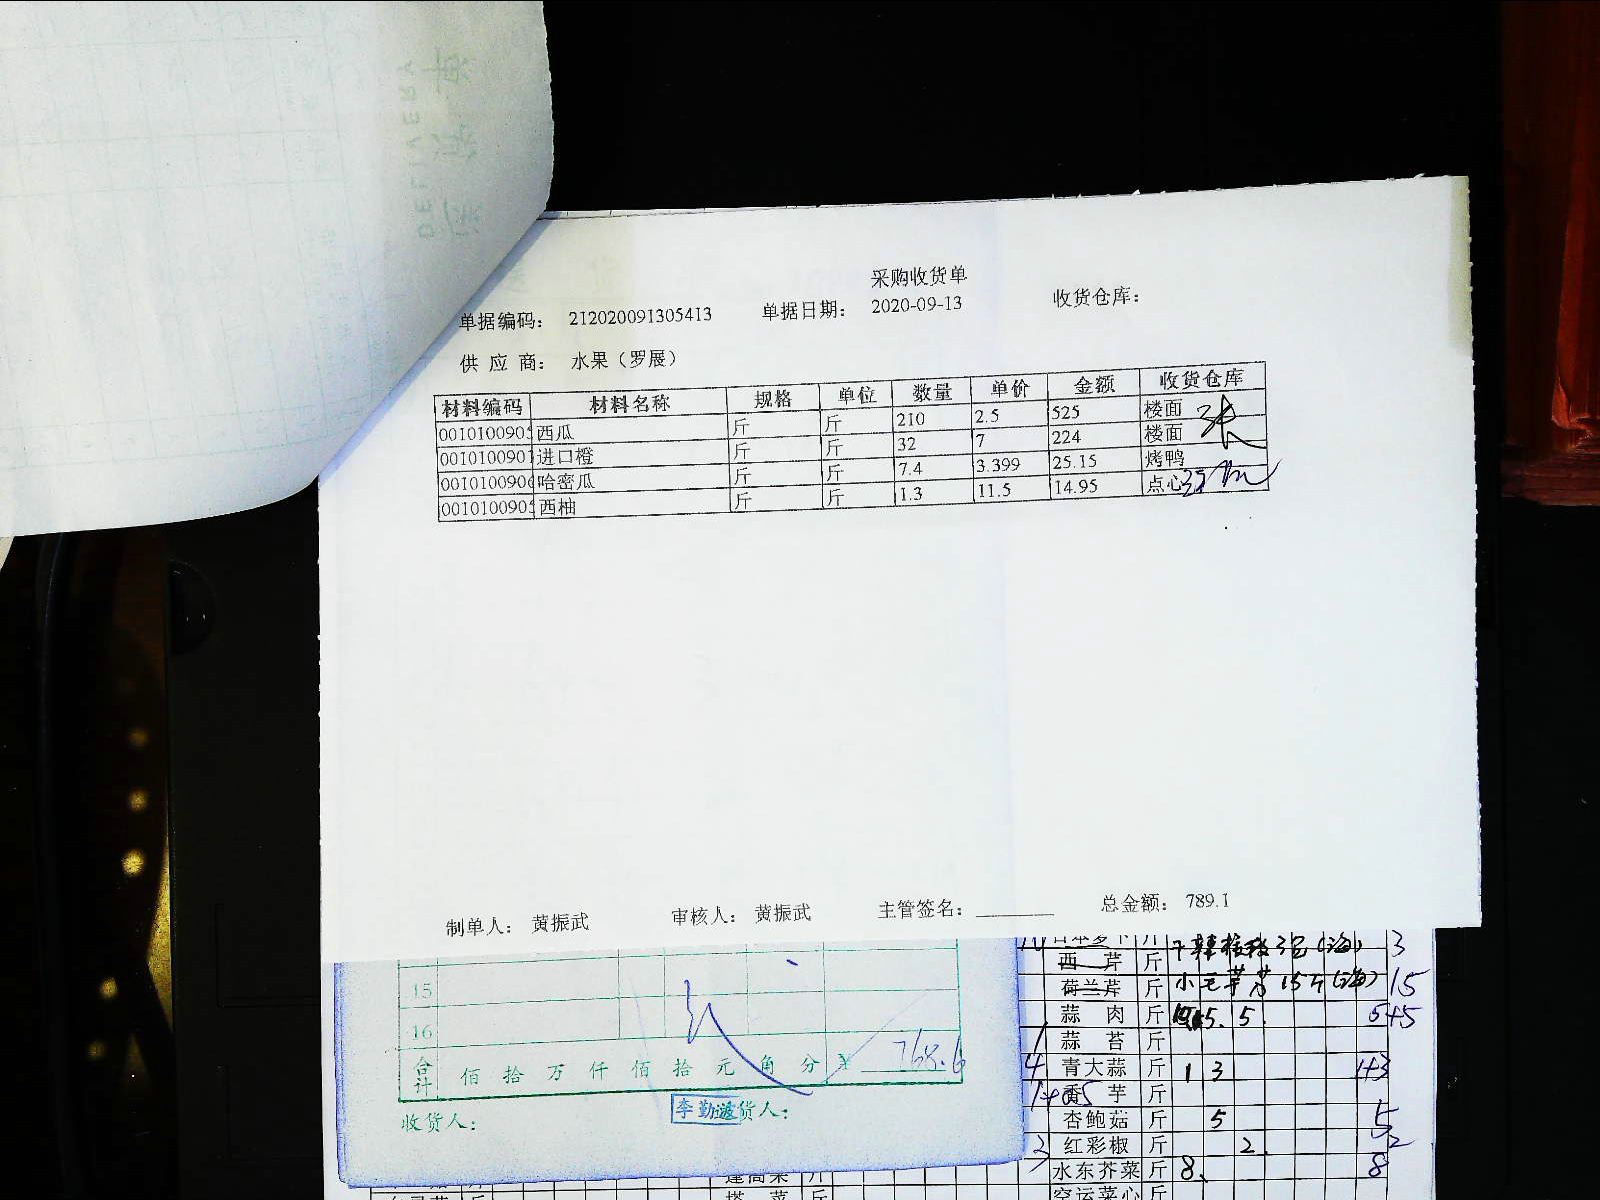 采购收货单
单据编码: 212020091305413 单据日期: 2020-09-13 收货仓库:
供 应 商: 水果（罗展）
材料编码 材料名称 规格 单位 数量 单价 金额 收货仓库
001010090 西瓜 斤 斤 210 2.5 525 楼面
001010090 进口橙 斤 斤 32 7 224 楼面
001010090 哈密瓜 斤 斤 7.4 3.399 25.15 烤鸭
001010090 西柚 斤 斤 1.3 11.5 14.95 点心
制单人: 黄振武 审核人: 黄振武 主管签名: 总金额: 789.1
15
16
合计 佰 拾 万 仟 佰 拾 元 角 分 ¥ 768.6
收货人: 李勤 货人:
西 芹 斤 3
荷兰芹 斤 小毛芋 15斤 15
蒜 肉 斤 5. 5. 5+5
蒜 苔 斤
4 青大蒜 斤 1 3 1+3
香 芋 斤
杏鲍菇 斤 5 5
3 红彩椒 斤 2. 2
水东芥菜 斤 8. 8
空运菜心 斤